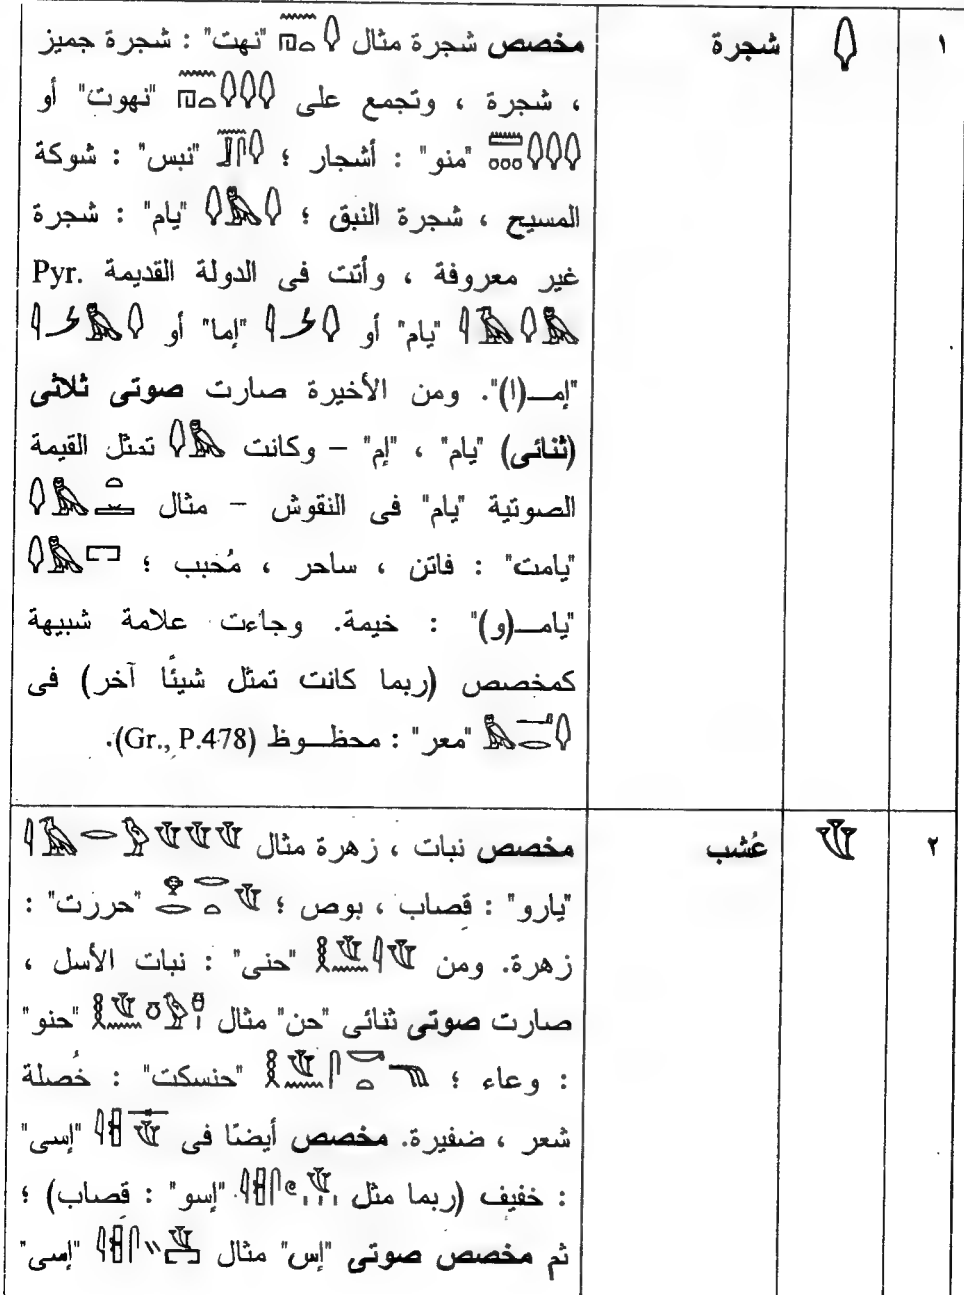 ١ شجرة مخصص شجرة مثال "نهت" : شجرة جميز
، شجرة ، وتجمع على "نهوت" أو
"منو" : أشجار ؛ "نبس" : شوكة
المسيح ، شجرة النبق ؛ "يام" : شجرة
غير معروفة ، وأتت فى الدولة القديمة Pyr.
"يام" أو "إما" أو
"إمـ(ا)". ومن الأخيرة صارت صوتى ثلاثى
(ثنائى) "يام" ، "إم" – وكانت تمثل القيمة
الصوتية "يام" فى النقوش – مثال
"يامت" : فاتن ، ساحر ، مُحبب ؛
"يامـ(و)" : خيمة. وجاءت علامة شبيهة
كمخصص (ربما كانت تمثل شيئًا آخر) فى
"معر" : محظوظ (Gr., P.478).
٢ عُشب مخصص نبات ، زهرة مثال
"يارو" : قصاب ، بوص ؛ "حررت" :
زهرة. ومن "حنى" : نبات الأسل ،
صارت صوتى ثنائى "حن" مثال "حنو"
: وعاء ؛ "حنسكت" : خُصلة
شعر ، ضفيرة. مخصص أيضًا فى "إسى"
: خفيف (ربما مثل "إسو" : قصاب) ؛
ثم مخصص صوتى "إس" مثال "إسى"